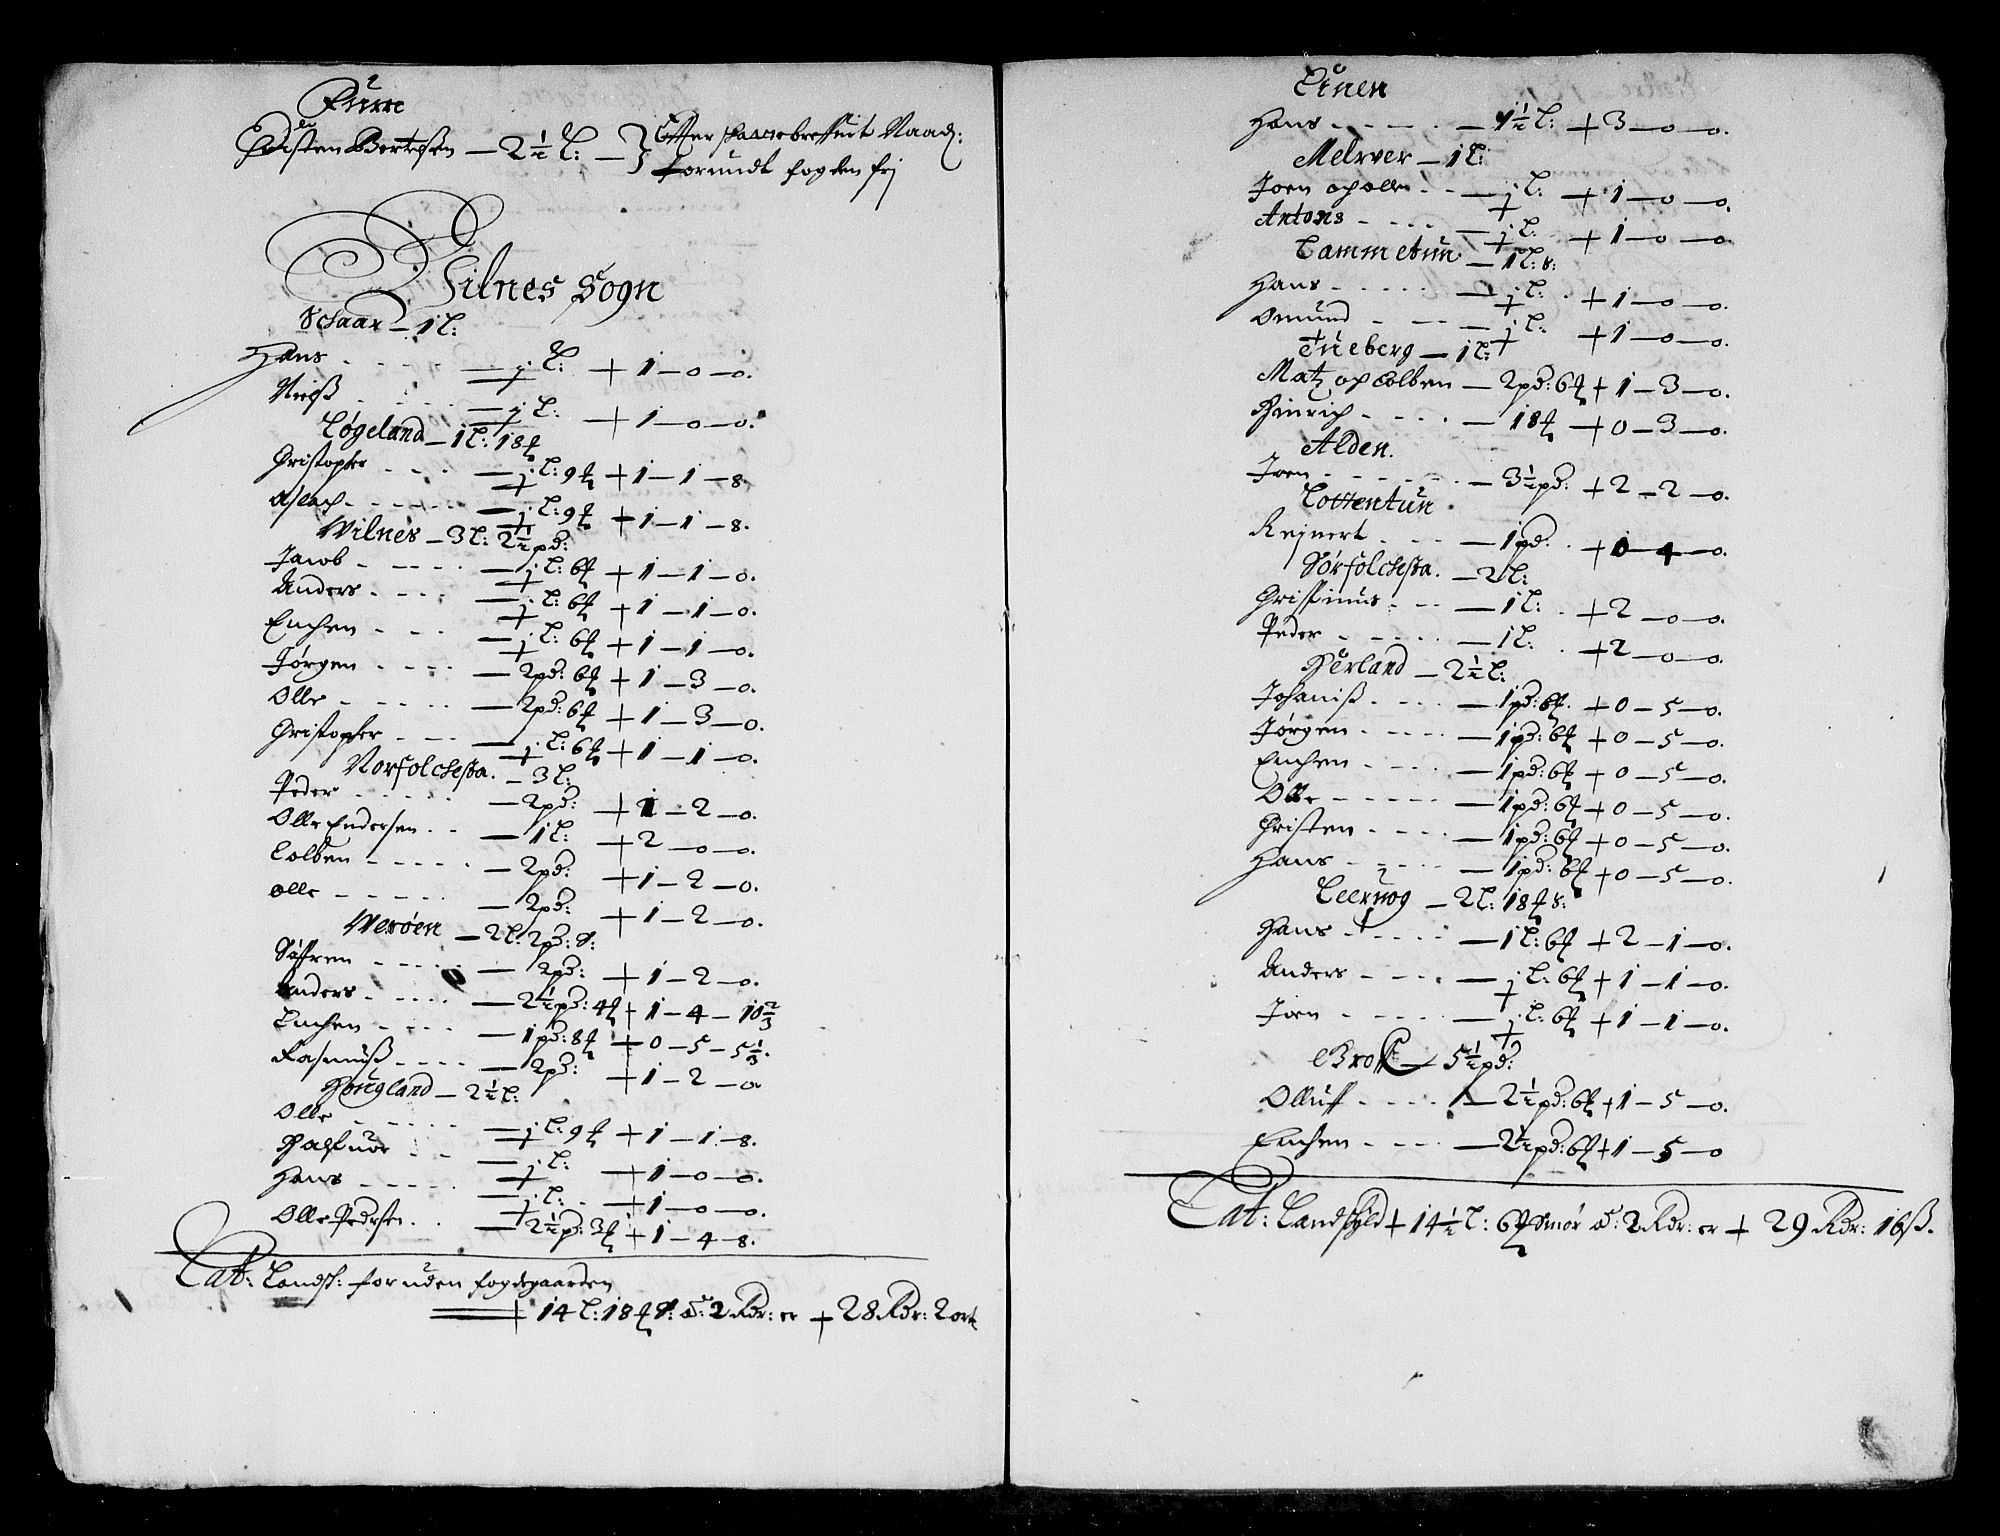 Fure
Christen Bertelsen — 2½ L: — } Effter haffuebreffuit Naad:
forundt fogden frj
Vilnes Sogn
Schaar — 1 L:
Hans - - - — ½ L: + 1 — 0 — 0.
Nielß - - - — ½ L: + 1 — 0 — 0.
Løgeland — 1 L: 18 ℔
Christopher - - - — ½ L: 9 ℔ + 1 — 1 — 8.
Aslach - - - — ½ L: 9 ℔ + 1 — 1 — 8.
Wilnes — 3 L: 2½ pd:
Jacob - - - — ½ L: 6 ℔ + 1 — 1 — 0.
Anders - - - — ½ L: 6 ℔ + 1 — 1 — 0.
Enchen - - - — ½ L: 6 ℔ + 1 — 1 — 0.
Jørgen - - - — 2 pd: 6 ℔ + 1 — 3 — 0.
Olle - - - — 2 pd: 6 ℔ + 1 — 3 — 0.
Christopher - - - — ½ L: 6 ℔ + 1 — 1 — 0.
Norfolchesta. — 3 L:
Peder - - - — 2 pd: + 1 — 2 — 0.
Olle Endersen - - — 1 L: + 2 — 0 — 0.
Colben - - - — 2 pd: + 1 — 2 — 0.
Olle - - - — 2 pd: + 1 — 2 — 0.
Werøen — 2 L: 2 pd: S:
Søffren - - - — 2 pd: + 1 — 2 — 0.
Anders - - - — 2½ pd: 4 ℔ + 1 — 4 — 10⅔
Enchen - - - — 1 pd: 8 ℔ + 0 — 5 — 5⅓.
Rasmuß - - - — 2 pd: + 1 — 2 — 0.
Hougland — 2½ L:
Olle - - - — ½ L: 9 ℔ + 1 — 1 — 8.
Halfuor - - — ½ L: + 1 — 0 — 0.
Hans - - - — ½ L: + 1 — 0 — 0.
Olle Pedersen - - — 2½ p: 3 ℔ + 1 — 4 — 8.
Lat: Landsk: foruden fogdegaarden
+ 14 L: 18 ℔ S: a: 2 Rdr: er + 28 Rdr: 2 ort
Lunen
Hans - - - — 1½ L: + 3 — 0 — 0.
Melver — 1 L:
Joen och Olle - - — ½ L: + 1 — 0 — 0.
Antons - - - — ½ L: + 1 — 0 — 0.
Lammetun — 1 L: S:
Hans - - - — ½ L: + 1 — 0 — 0.
Omund - - - — ½ L: + 1 — 0 — 0.
Tueberg — 1 L:
Matz och Colben — 2 pd: 6 ℔ + 1 — 3 — 0.
Hinrich - - - — 18 ℔ + 0 — 3 — 0.
Alden.
Joen - - - — 3½ pd: + 2 — 2 — 0.
Lottentun.
Rejnert - - - — 1 pd. + 0 — 4 — 0.
Sørfolchesta. — 2 L:
Christinus - - — 1 L: + 2 — 0 — 0.
Peder - - - — 1 L: + 2 — 0 — 0.
Herland — 2½ L:
Johaniß - - - — 1 pd: 6 ℔. + 0 — 5 — 0.
Jørgen - - - — 1 pd: 6 ℔ + 0 — 5 — 0.
Enchen - - - — 1 pd: 6 ℔ + 0 — 5 — 0.
Olle - - - — 1 pd: 6 ℔ + 0 — 5 — 0.
Christen - - - — 1 pd: 6 ℔ + 0 — 5 — 0.
Hans - - - — 1 pd: 6 ℔ + 0 — 5 — 0.
Leervog — 2 L: 18 ℔ S:
Hans - - - — 1 L: 6 ℔ + 2 — 1 — 0.
Anders - - - — ½ L: 6 ℔ + 1 — 1 — 0.
Joen - - - — ½ L: 6 ℔ + 1 — 1 — 0.
Broff — 5½ pd:
Olluff - - - — 2½ pd: 6 ℔ + 1 — 5 — 0.
Enchen - - - — 2½ pd: 6 ℔ + 1 — 5 — 0
Lat: Landskyld + 14½ L: 6 ℔ Smør a: 2 Rdr: er + 29 Rdr: 16 ß.